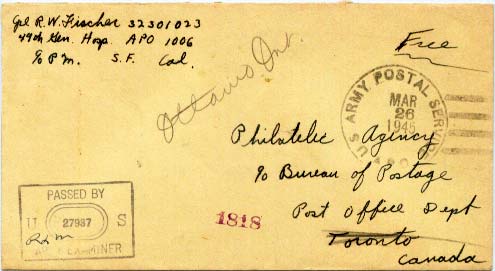 Cpl R. W. Fischer 32301023
49th Gen. Hosp. APO 1006
℅ P.M. S.F. Cal.
Free
Ottawa Ont.
U S ARMY POSTAL SERVICE
MAR
26
1945
A.P.O.
Philatelic Agency
℅ Bureau of Postage
Post Office Dept
Toronto
Canada
PASSED BY
U 27937 S
ARMY EXAMINER
1818